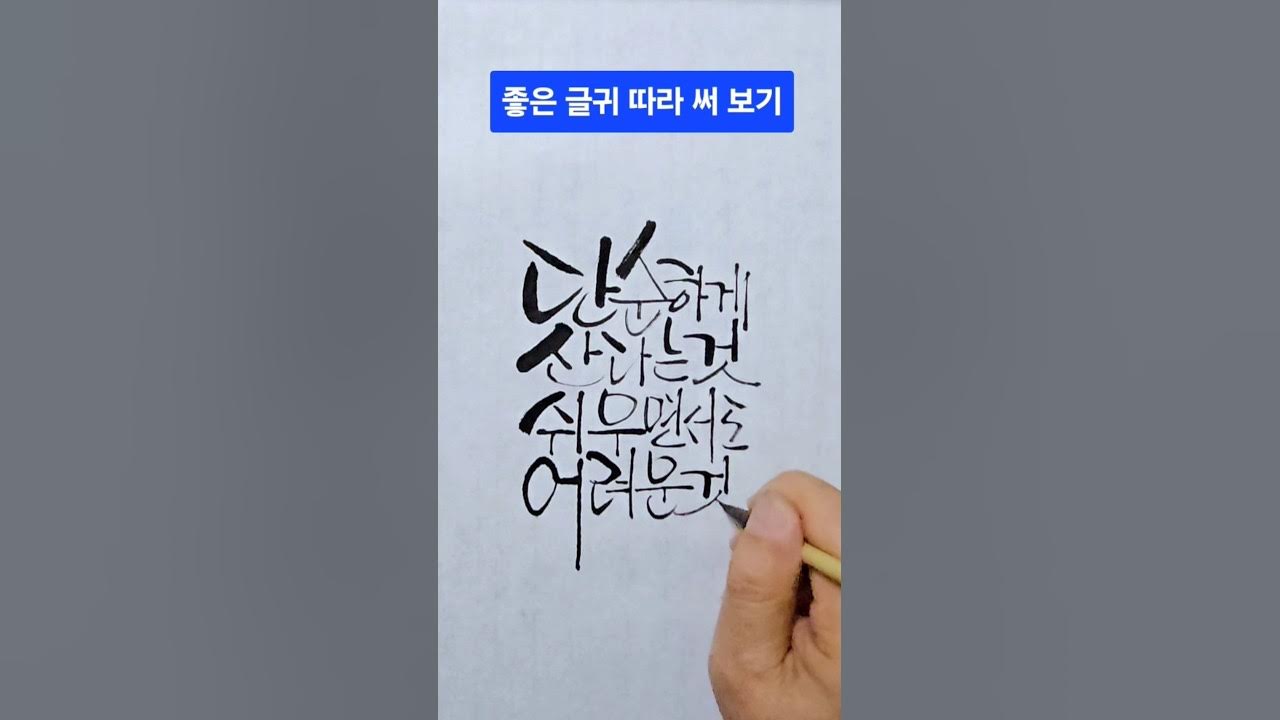 좋은 글귀 따라 써 보기
단순하게
산다는것
쉬우면서도
어려운것